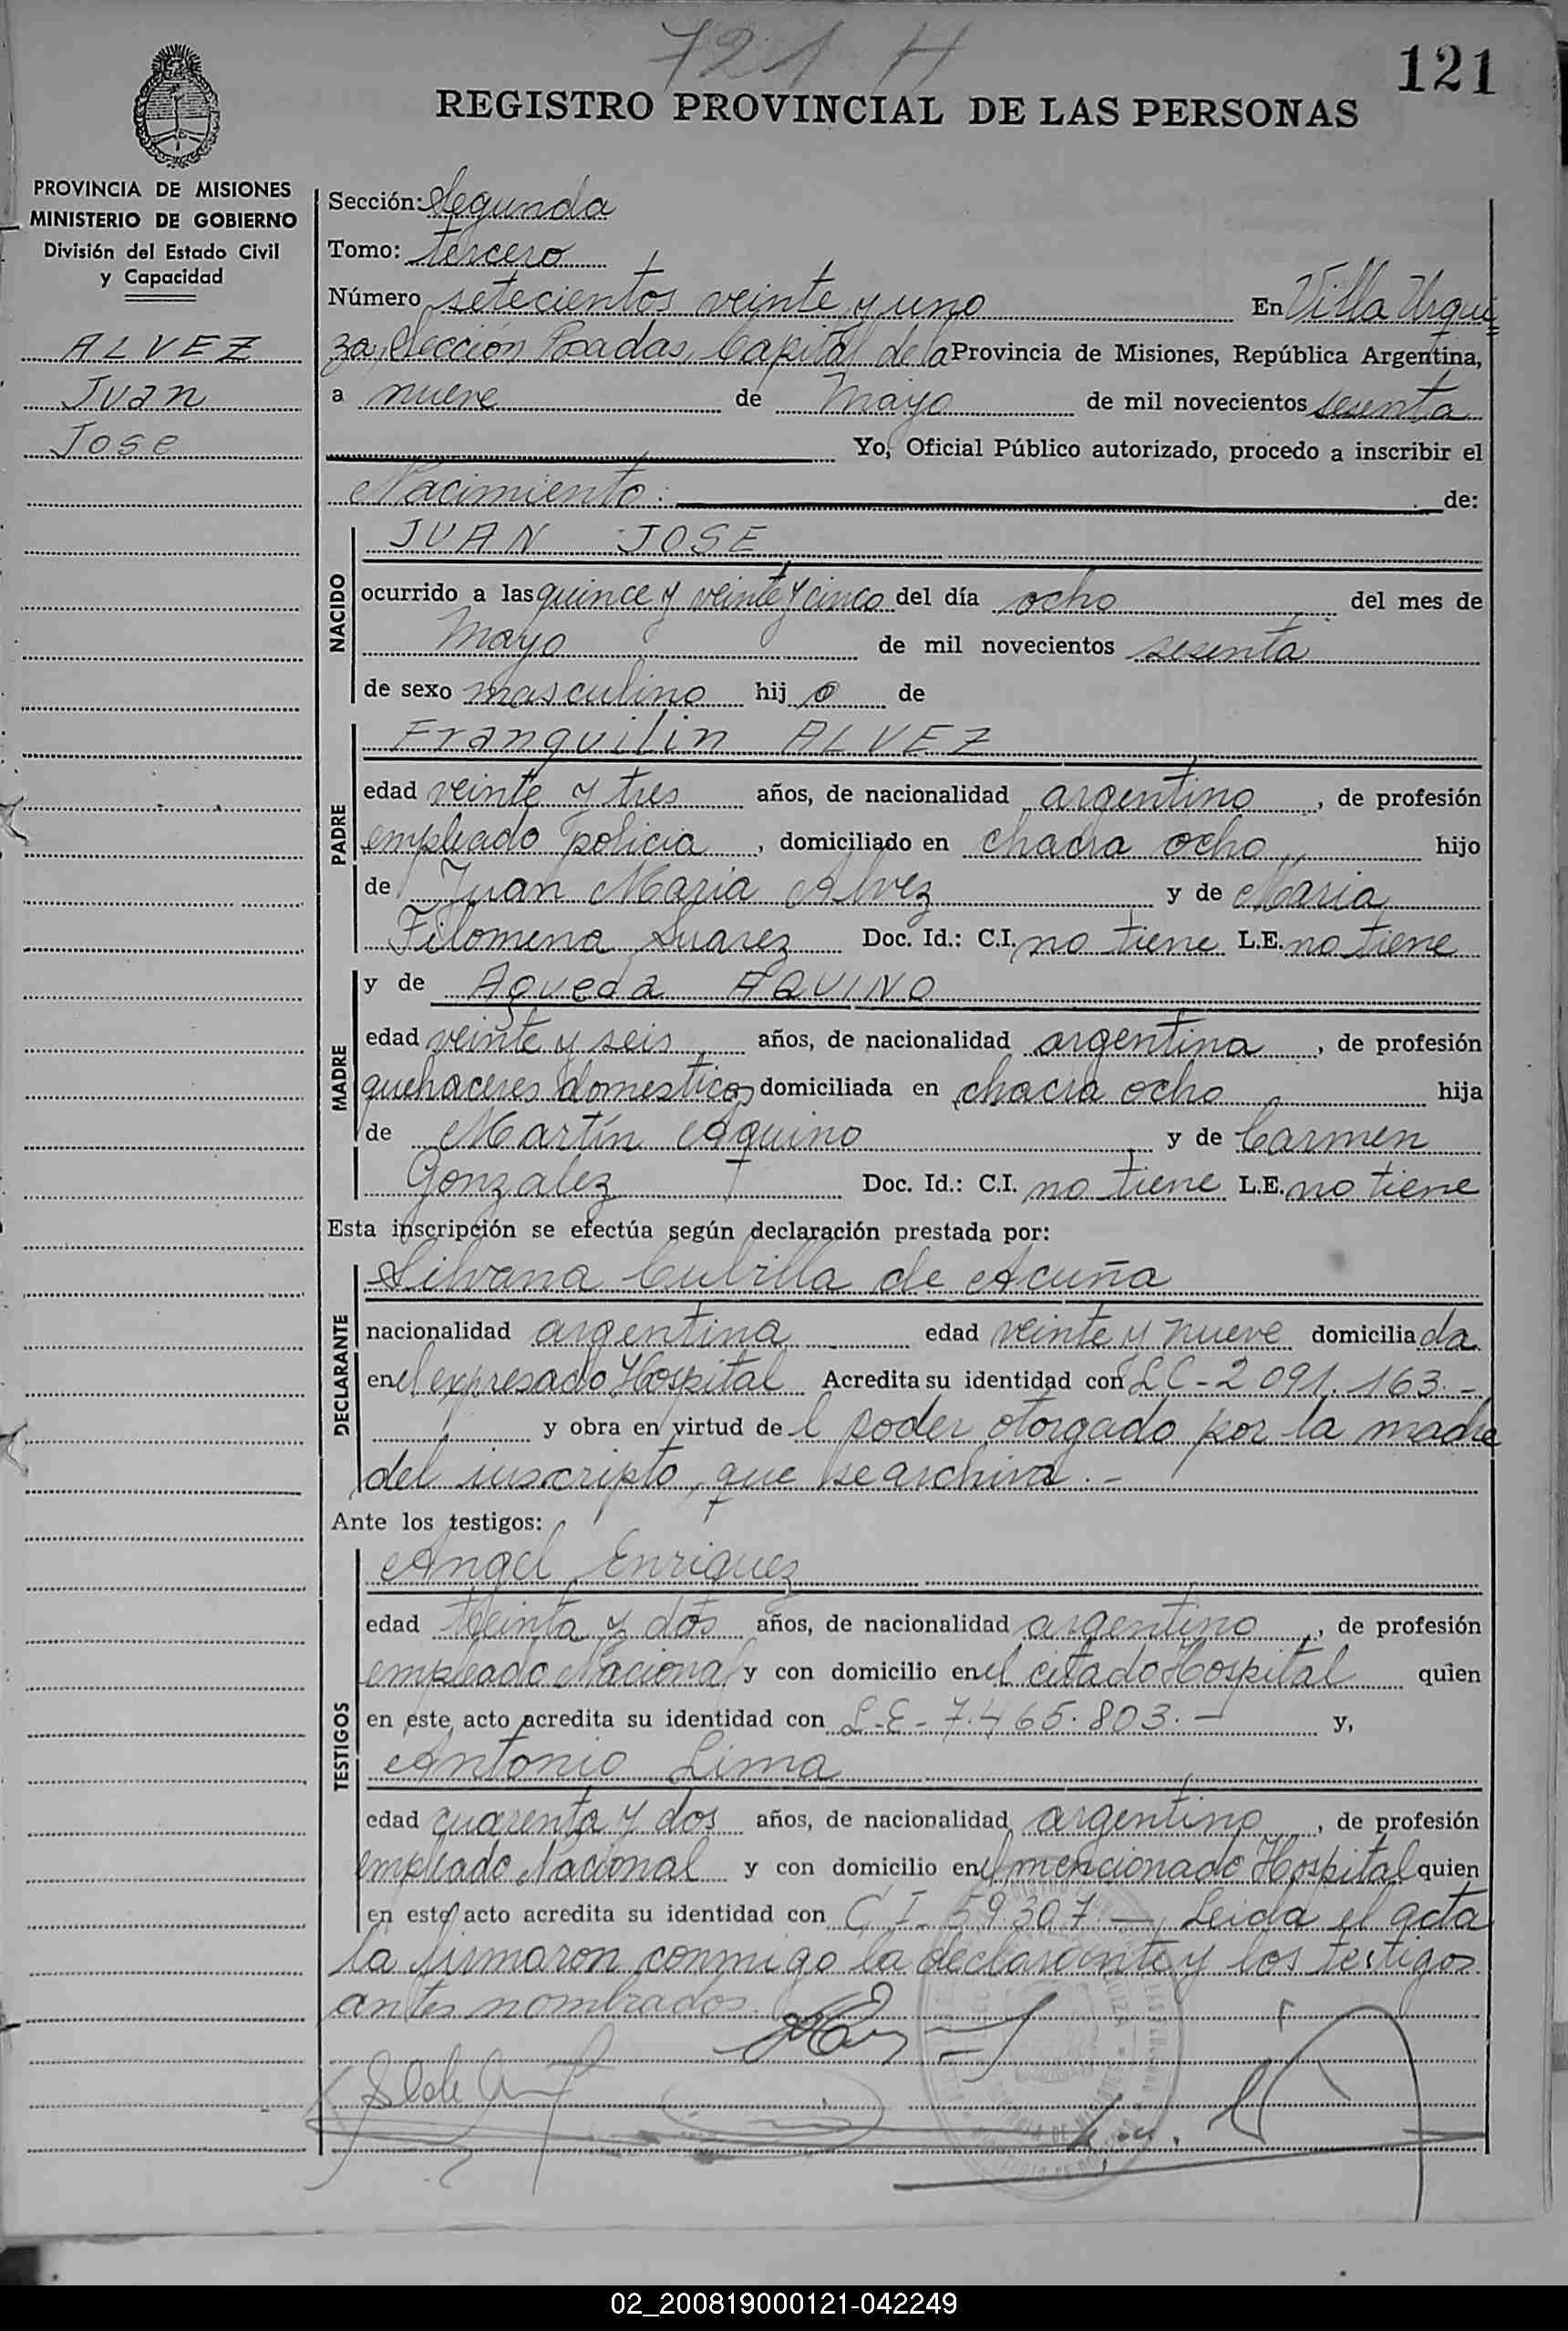 721 H
121
REGISTRO PROVINCIAL DE LAS PERSONAS
PROVINCIA DE MISIONES
MINISTERIO DE GOBIERNO
División del Estado Civil
y Capacidad
ALVEZ
Juan
Jose
Sección: Segunda
Tomo: tercero
Número setecientos veinte y uno En Villa Urqui
za, Sección Posadas, Capital de la Provincia de Misiones, República Argentina,
a nueve de Mayo de mil novecientos sesenta
Yo, Oficial Público autorizado, procedo a inscribir el
Nacimiento: de:
NACIDO
JUAN JOSE
ocurrido a las quince y veinte y cinco del día ocho del mes de
Mayo de mil novecientos sesenta
de sexo masculino hijo de
PADRE
Franquilin ALVEZ
edad veinte y tres años, de nacionalidad argentino, de profesión
empleado policia, domiciliado en chacra ocho hijo
de Juan Maria Alvez y de Maria
Filomena Suarez Doc. Id.: C.I. no tiene L.E. no tiene
MADRE
y de Agueda AQUINO
edad veinte y seis años, de nacionalidad argentina, de profesión
quehaceres domesticos domiciliada en chacra ocho hija
de Martín Aquino y de Carmen
Gonzalez Doc. Id.: C.I. no tiene L.E. no tiene
Esta inscripción se efectúa según declaración prestada por:
DECLARANTE
Silvana Cubilla de Acuña
nacionalidad argentina edad veinte y nueve domiciliada
en el expresado Hospital Acredita su identidad con LC-2091.163.-
y obra en virtud de l poder otorgado por la madre
del inscripto, que se archiva.-
Ante los testigos:
TESTIGOS
Angel Enriquez
edad treinta y dos años, de nacionalidad argentino, de profesión
empleado Nacional y con domicilio en el citado Hospital quien
en este acto acredita su identidad con L.E-7.465.803.- y,
Antonio Lima
edad cuarenta y dos años, de nacionalidad argentino, de profesión
empleado Nacional y con domicilio en el mencionado Hospital quien
en este acto acredita su identidad con C.I. 59.307.- Leida el acta
la firmaron conmigo la declarante y los testigos
antes nombrados.
02_200819000121-042249